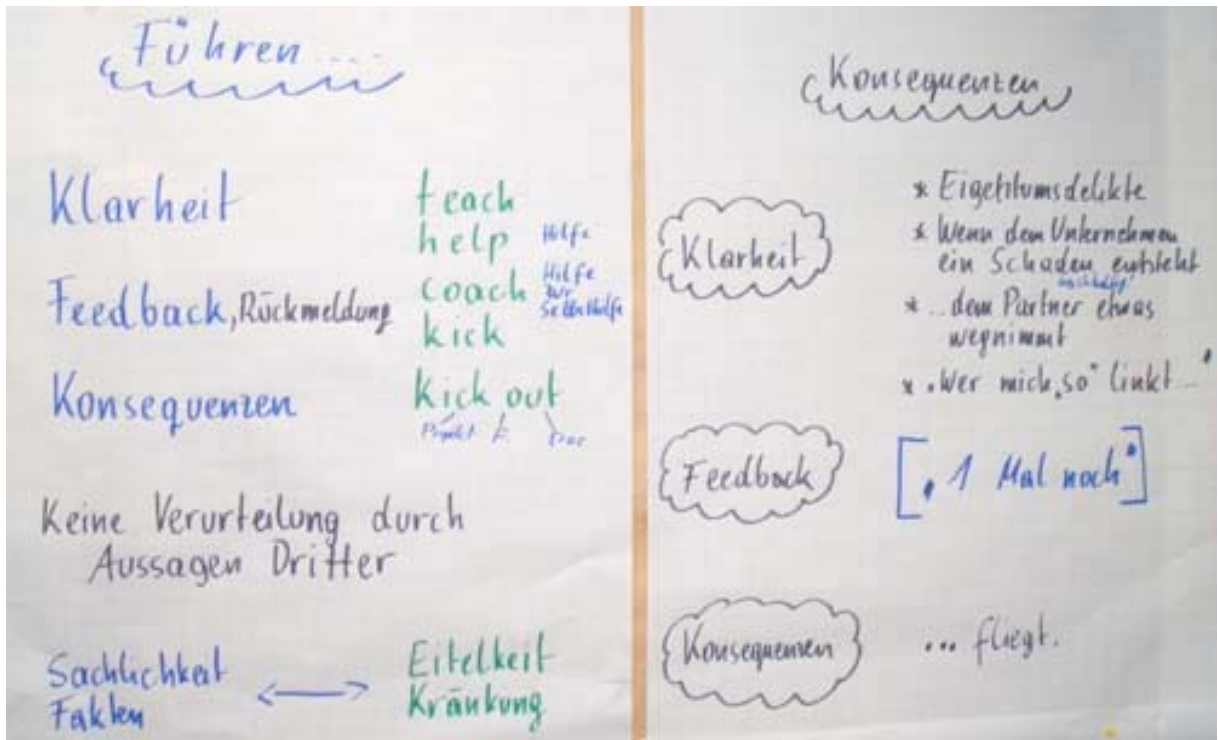 Führen....
Klarheit
Feedback, Rückmeldung
Konsequenzen
teach
help Hilfe
coach Hilfe zur Selbsthilfe
kick
kick out
Projekt
Keine Verurteilung durch
Aussagen Dritter
Sachlichkeit
Fakten
Eitelkeit
Kränkung
Konsequenzen
Klarheit
* Eigetitumsdelikte
* Wenn dem Unternehmen
ein Schaden entsteht
* ... dem Partner etwas
wegnimmt
* "Wer mich "so" linkt..."
Feedback
["1 Mal noch"]
Konsequenzen
... fliegt.